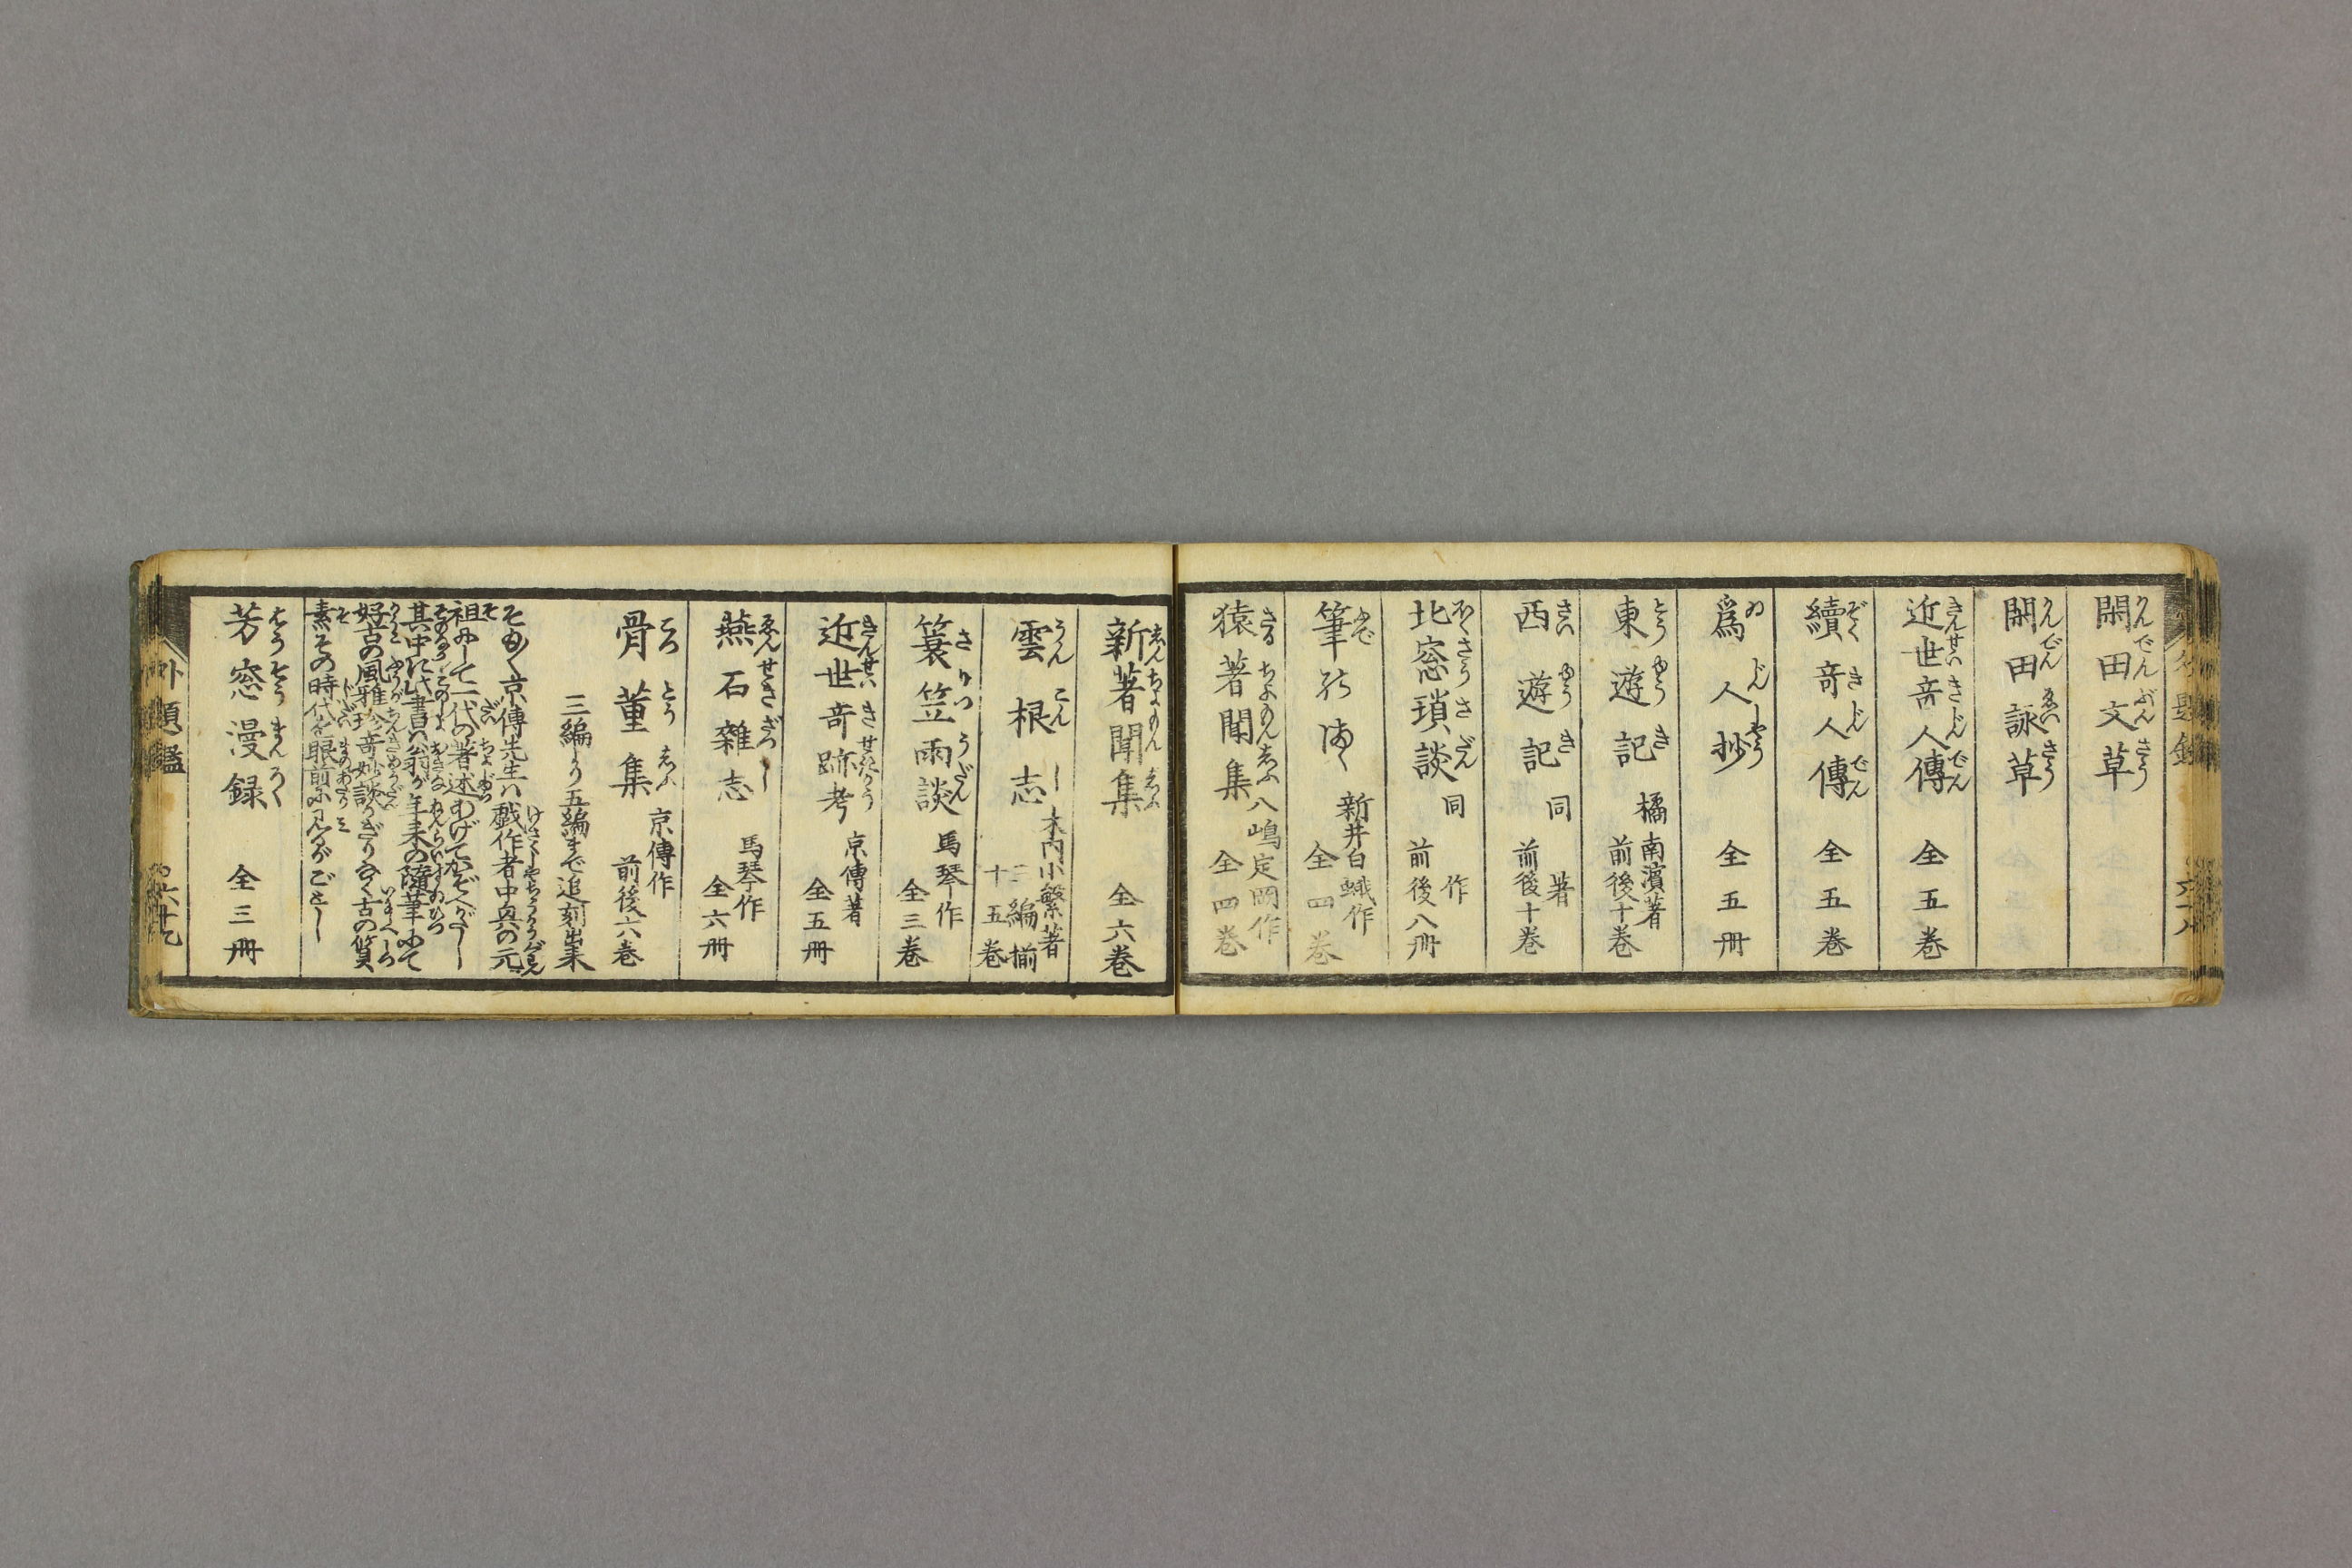 閑田文草
閑田詠草
近世奇人傳 全五巻
續奇人傳 全五巻
爲人抄 全五冊
東遊記 橘南濱著 前後十巻
西遊記 同著 前後十巻
北窓瑣談 同作 前後八冊
筆のまゝ 新井白蛾作 全四巻
猿著聞集 八嶋定岡作 全四巻
新著聞集 全六巻
雲根志 木内小繁著 三編揃 十五巻
簑笠雨談 馬琴作 全三巻
近世奇跡考 京傳著 全五冊
燕石雜志 馬琴作 全六冊
骨董集 京傳作 前後六巻
三編より五編まで追刻出来
そもゝゝ京傳先生ハ戯作者中興の元
祖にして一代の著述あげてかぞへがたし
其中に此書ハ翁が年来の隨筆にて
好古の風雅珍奇妙談かぎりなく古の質
素その時代を眼前に見るがごとし
芳窓漫録 全三冊
外題鑑